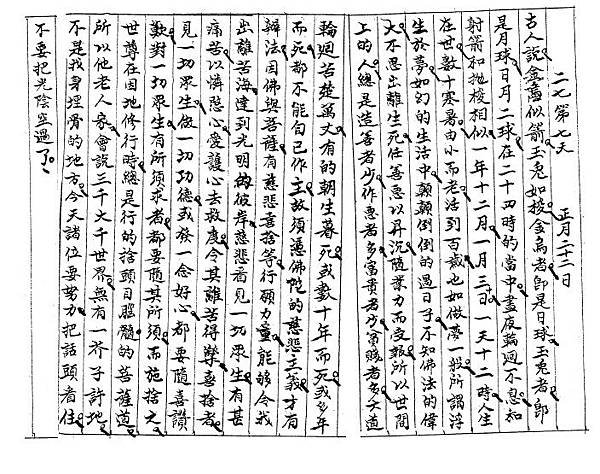 二七第七天 正月二十二日
古人說金烏似箭玉兔如梭金烏者即是日球玉兔者即
是月球日月二球在二十四時的當中晝夜輪迴不息如
射箭和拋梭相似一年十二月一月三日一天十二時人生
在世數十寒暑由小而老活到百歲也如做夢一般所謂浮
生於夢如幻的生活中顛顛倒倒的過日子不知佛法的偉
大不思出離生死任善惡以昇沉隨業力而受報所以世間
上的人總是造善者少作惡者多富貴者少貧賤者多六道
輪迴苦楚萬丈有的朝生暮死或數十年而死或多年
而死都不能自己作主故須憑佛陀的慈悲主義才有
辦法因佛與菩薩有慈悲喜捨等行願力量能够令我
出離苦海達到光明的彼岸慈悲看見一切眾生有甚
痛苦以憐愍心愛護心去救度令其離苦得樂喜捨者
見一切眾生做一切功德或發一念好心都要隨喜讚
歎對一切眾生有所須求者都要隨其所須而施捨之
世尊在因地修行時總是行的捨頭目腦髓的菩薩道
所以他老人家會說三千大千世界無有一芥子許地
不是我身埋骨的地方今天諸位要努力把話頭看住
不要把光陰空過了